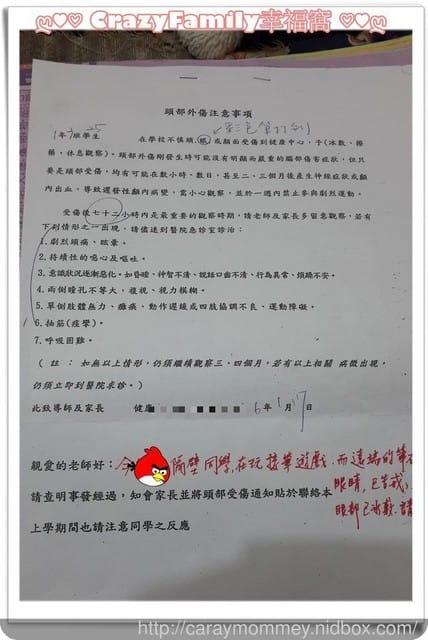 ღ♡♡ CrazyFamily幸福窩 ♡♡ღ
頭部外傷注意事項
彩色筆打到
1年7班學生 25 在學校不慎頭(眼)或顏面受傷到健康中心，予(冰敷、擦
藥、休息觀察)。頭部外傷剛發生時可能沒有明顯而嚴重的腦部傷害症狀，但只
要是頭部受傷，均有可能在數小時、數日，甚至二、三個月後產生神經症狀或顱
內出血，導致遲發性顱內病變，當小心觀察，並於一週內禁止參與劇烈運動。
受傷後七十二小時內是最重要的觀察時期，請老師及家長多留意觀察，若有
下列情形之一出現，請儘速到醫院急診室診治：
1.劇烈頭痛、眩暈。
2.持續性的噁心及嘔吐。
3.意識狀況逐漸惡化。如昏睡、神智不清、說話口齒不清、行為異常、煩躁不安。
4.兩側瞳孔不等大，複視、視力模糊。
5.單側肢體無力、癱瘓、動作遲緩或四肢協調不良、運動障礙。
6.抽筋(痙攣)。
7.呼吸困難。
(註：如無以上情形，仍須繼續觀察三、四個月，若有以上相關 病徵出現，
仍須立即到醫院求診。)
此致導師及家長 健康 6年1月17日
親愛的老師好：今 隔壁同學,在玩接筆遊戲.而遠端的筆
請查明事發經過，知會家長並將頭部受傷通知貼於聯絡本 眼睛,已告戒
上學期間也請注意同學之反應 眼部已冰敷.請
http://caraymommey.nidbox.com/